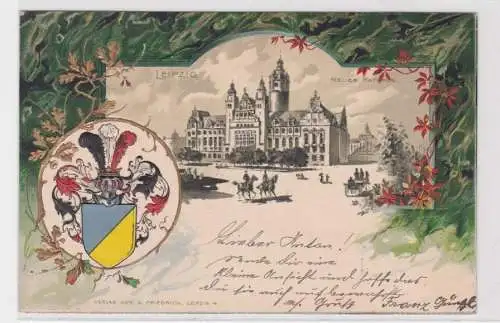 LEIPZIG
NEUES RATH
Lieber Anton!
sende Dir eine
kleine Ansicht und hoffe dass
du sie auch
Gruß Franz
VERLAG VON G. FRIEDRICH, LEIPZIG